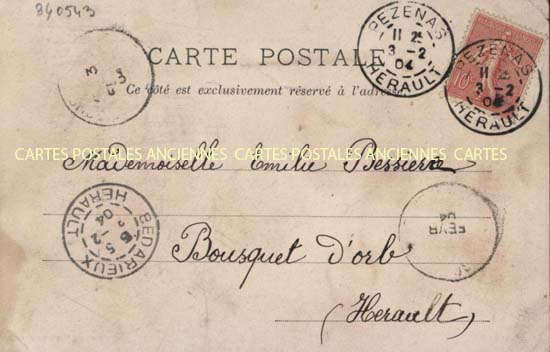 840543
CARTE POSTALE
Ce côté est exclusivement réservé à l'adresse
PEZENAS
11 2E
3 -2
04
HERAULT
PEZENAS
11 2E
3 -2
04
HERAULT
10
CARTES POSTALES ANCIENNES CARTES POSTALES ANCIENNES CARTES
Mademoiselle Emilie Bessière
BEDARIEUX
5 -2
04
HERAULT
FEVR
04
Bousquet d'orb
(Herault)